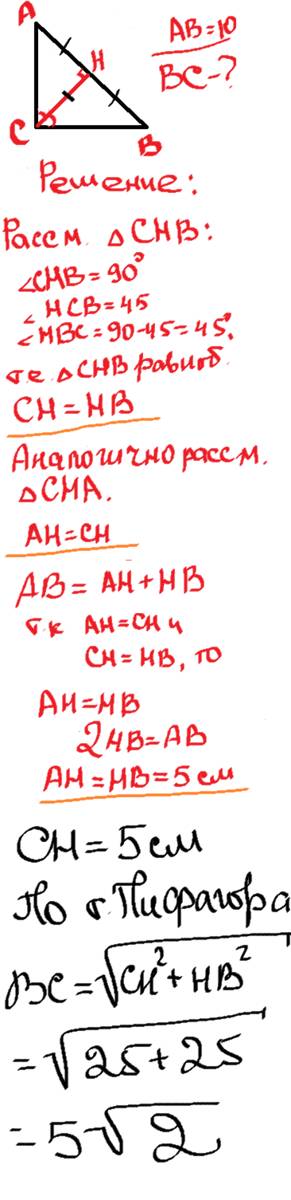 A
H
C
B
AB=10
BC-?
Решение:
Рассм. △CHB:
∠CHB=90°
∠HCB=45
∠HBC=90-45=45°.
т.е. △CHB равноб.
CH=HB
Аналогично рассм.
△CHA.
AH=CH
AB=AH+HB
т.к AH=CH и
CH=HB, то
AH=HB
2HB=AB
AH=HB=5см
CH=5см
По т.Пифагора
BC=√CH²+HB²
=√25+25
=5√2